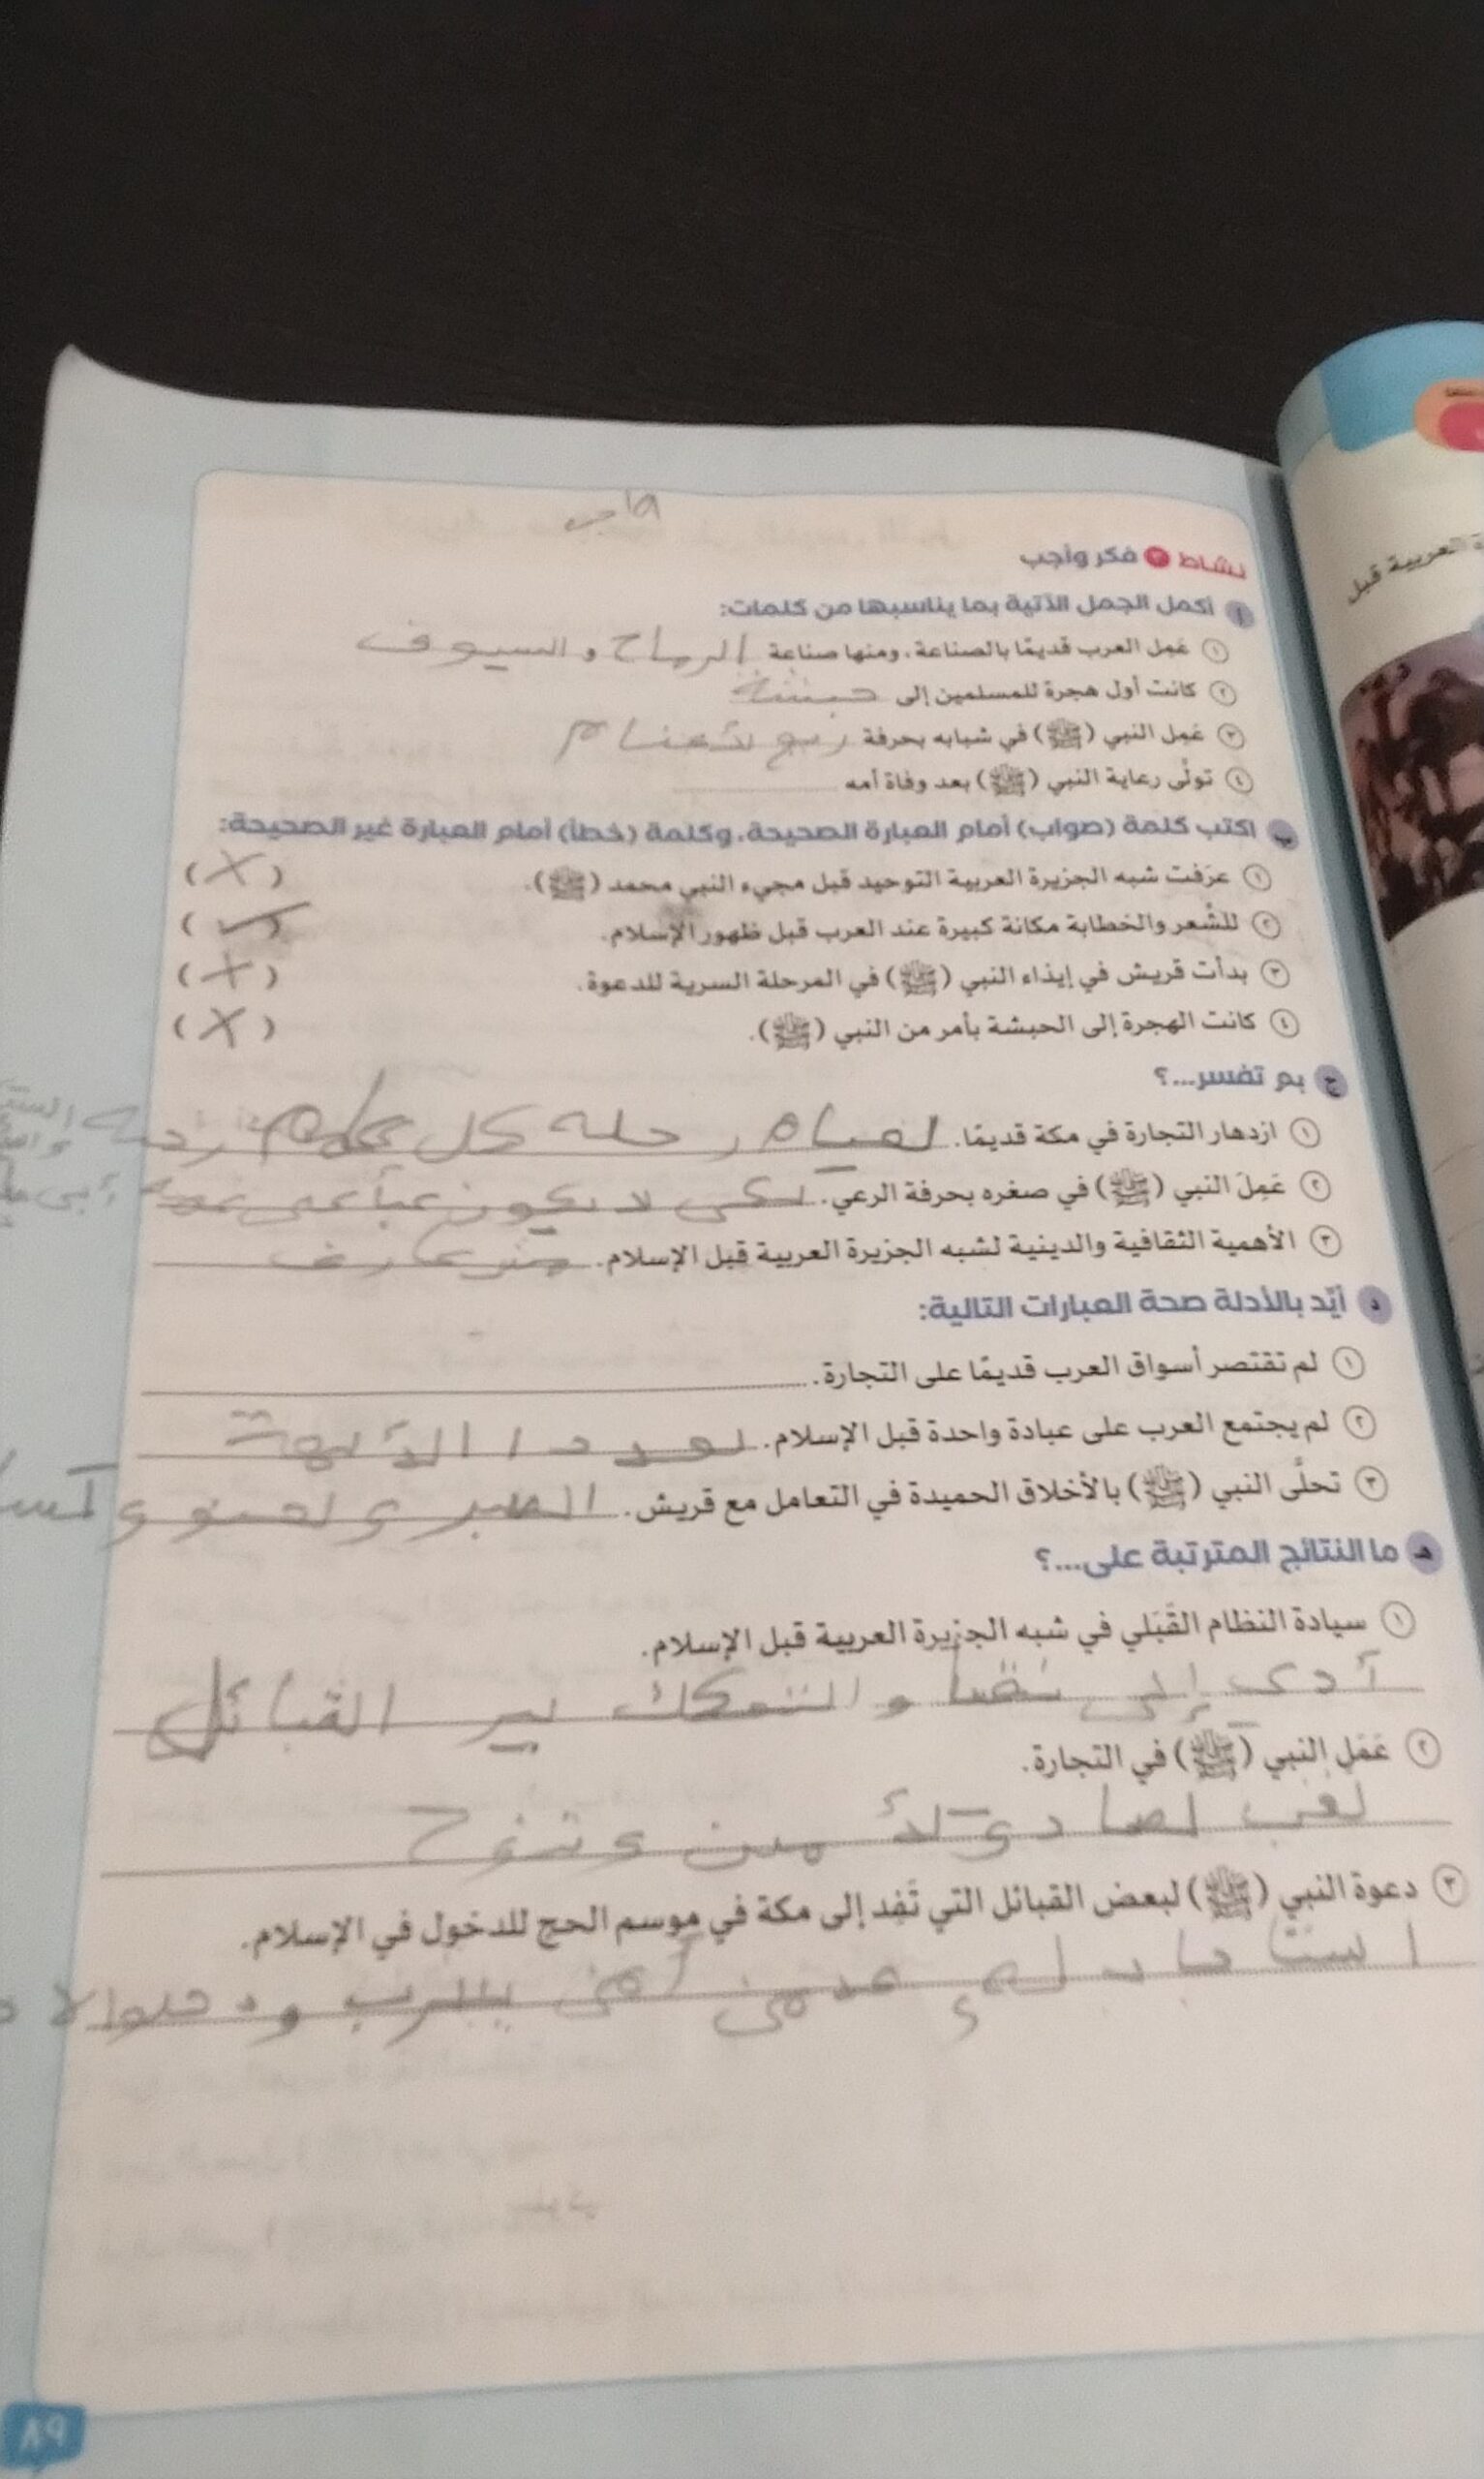 نشاط ٣ فكر وأجب
أ أكمل الجمل الآتية بما يناسبها من كلمات:
١ عَمِل العرب قديمًا بالصناعة، ومنها صناعة الرماح والسيوف
٢ كانت أول هجرة للمسلمين إلى حبشة
٣ عَمِل النبي (ﷺ) في شبابه بحرفة
٤ تولَّى رعاية النبي (ﷺ) بعد وفاة أمه
ب اكتب كلمة (صواب) أمام العبارة الصحيحة، وكلمة (خطأ) أمام العبارة غير الصحيحة:
١ عرَفت شبه الجزيرة العربية التوحيد قبل مجيء النبي محمد (ﷺ). (X)
٢ للشِّعر والخطابة مكانة كبيرة عند العرب قبل ظهور الإسلام. (✓)
٣ بدأت قريش في إيذاء النبي (ﷺ) في المرحلة السرية للدعوة. (X)
٤ كانت الهجرة إلى الحبشة بأمر من النبي (ﷺ). (X)
ج بم تفسر...؟
١ ازدهار التجارة في مكة قديمًا. رحلة كل
٢ عَمِلَ النبي (ﷺ) في صغره بحرفة الرعي. لكى لا يكون عبأ على
٣ الأهمية الثقافية والدينية لشبه الجزيرة العربية قبل الإسلام. مش عارف
د أيِّد بالأدلة صحة العبارات التالية:
١ لم تقتصر أسواق العرب قديمًا على التجارة.
٢ لم يجتمع العرب على عبادة واحدة قبل الإسلام.
٣ تحلَّى النبي (ﷺ) بالأخلاق الحميدة في التعامل مع قريش. الصبر
هـ ما النتائج المترتبة على...؟
١ سيادة النظام القَبَلي في شبه الجزيرة العربية قبل الإسلام.
أدى إلى والتفكك بين القبائل
٢ عَمَل النبي (ﷺ) في التجارة.
لقب
٣ دعوة النبي (ﷺ) لبعض القبائل التي تَفِد إلى مكة في موسم الحج للدخول في الإسلام.
٨٩